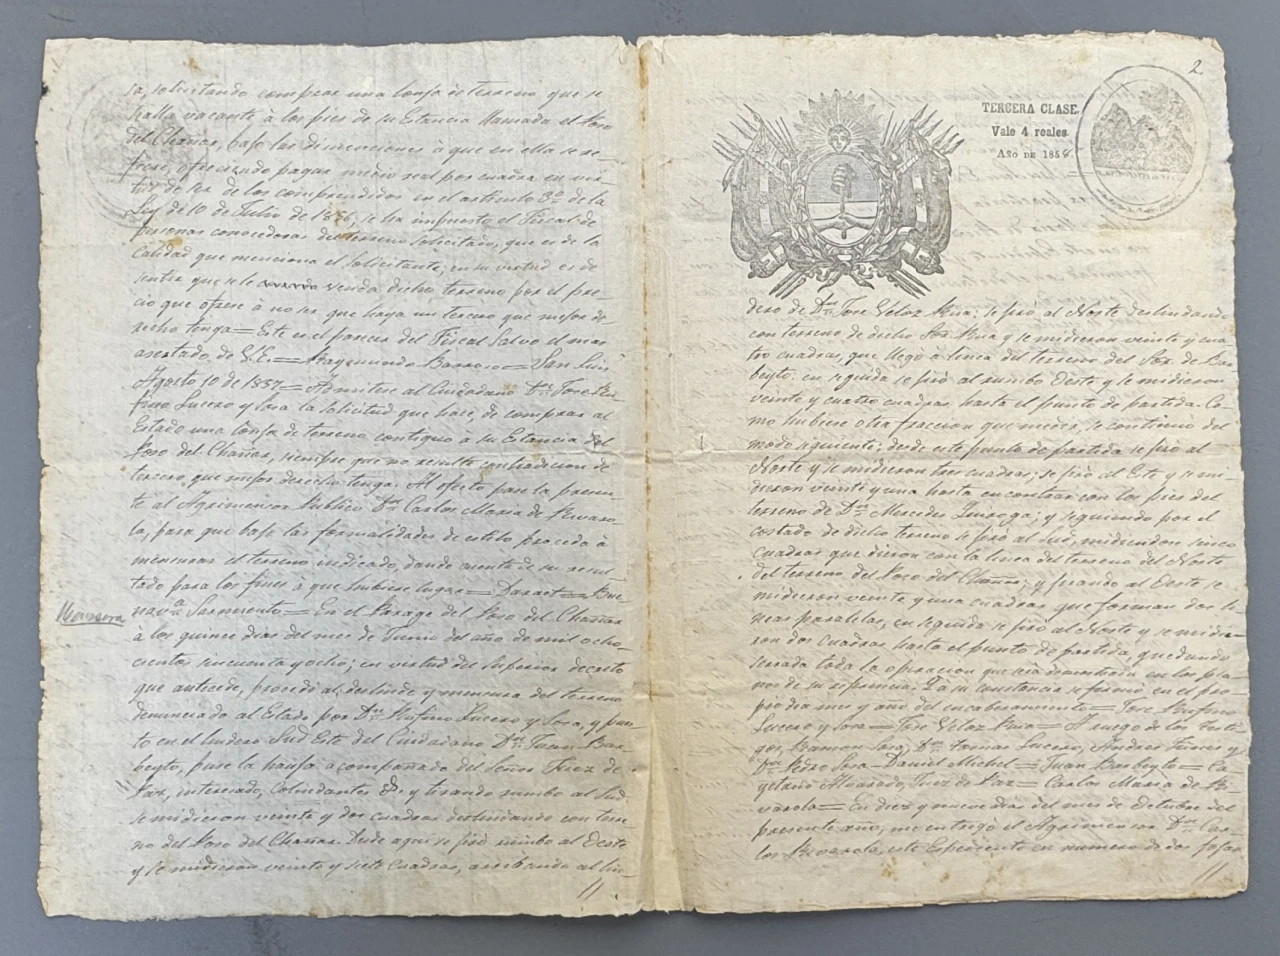 sa, solicitando comprar una lonja de terreno que se
halla vacante á los pies de su Estancia llamada el Poso
del Chañar, bajo las dimenciones á que en ella se re-
fiere, ofreciendo pagar medio real por cuadra en vir-
tud de ser de los comprendidos en el artículo 3º de la
Ley de 10 de Julio de 1856, se ha impuesto el Fiscal de
personas conocedoras del terreno solicitado, que es de la
calidad que menciona el solicitante; en su virtud es de
sentir que se le venda dicho terreno por el pre-
cio que ofrese á no ser que haya un tercero que mejor de-
recho tenga = Este es el parecer del Fiscal salvo el mas
asertado, de V.E. = Raymundo Barroso = San Luis
Agosto 10 de 1857 = Admitese al Ciudadano Dn. José Ru-
fino Lucero y Sosa la solicitud que hace, de comprar al
Estado una lonja de terreno contiguo á su Estancia del
Poso del Chañar, siempre que no resulte contradicion de
tercero que mejor derecho tenga. Al efecto pase la presen-
te al Agrimensor Público Dn. Carlos Maria de Rivaro-
la, para que bajo las formalidades de estilo proceda á
mensurar el terreno indicado, dando cuenta de su resul-
tado para los fines á que hubiere lugar = Daract = Bue-
navª Sarmiento = En el Parage del Poso del Chañar
Mensura
á los quince dias del mes de Junio del año de mil ocho
cientos cincuenta y ocho; en virtud del Superior decreto
que antecede, procedí al deslinde y mensura del terreno
denunciado al Estado por Dn. Rufino Lucero y Sosa, y pues-
to en el lindero Sud Este del Ciudadano Dn. Juan Bar-
beyto, puse la hauja acompañado del Señor Juez de
Paz, interesado, Colindantes &. y tirando rumbo al Sud
se midieron veinte y dos cuadras deslindando con terre-
no del Poso del Chañar. Desde aqui se jiró rumbo al Oeste
y se midieron veinte y siete cuadras, arribando al lin-
//
2.
TERCERA CLASE.
Vale 4 reales.
AÑO DE 1858
dero de Dn. José Veloz Rua: se jiró al Norte deslindando
con terreno de dicho Sor. Rua y se midieron veinte y cua-
tro cuadras, que llegó á linea del terreno del Sor. de Bar-
beyto: en seguida se jiró al rumbo Oeste y se midieron
veinte y cuatro cuadras hasta el punto de partida. Co-
mo hubiere otra fraccion que medir, se continuó del
modo siguiente: desde este punto de partida se jiró al
Norte y se midieron tres cuadras; se jiró al Este y se mi-
dieron veinte y una hasta encontrar con los pies del
terreno de Dn. Mercedes Quiroga; y siguiendo por el
costado de dicho terreno se jiró al Sud, midiendose cinco
cuadras que dieron con la linea del terreno del Norte
del terreno del Poso del Chañar; y jirando al Oeste se
midieron veinte y una cuadras que forman dos li-
neas paralelas, en seguida se jiró al Norte y se midie-
ron dos cuadras hasta el punto de partida, quedando
serrada toda la operacion que sea demostrada en los pla-
nos de su referencia. Y á su constancia se firmó en el pro-
pio dia mes y año del encabesamiento = José Rufino
Lucero y Sosa = José Veloz Rua = A ruego de los Testi-
gos, Ramon Sosa, Dn. Tomas Lucero, Andres Funes y
Pedro Sosa = Daniel Michel = Juan Barbeyto = Ca-
yetano Alvarado, Juez de Paz = Carlos Maria de Ri-
varola = En diez y nueve dias del mes de Octubre del
presente año, me entregó el Agrimensor Dn. Car-
los Rivarola, este Espediente en número de dos fojas
//